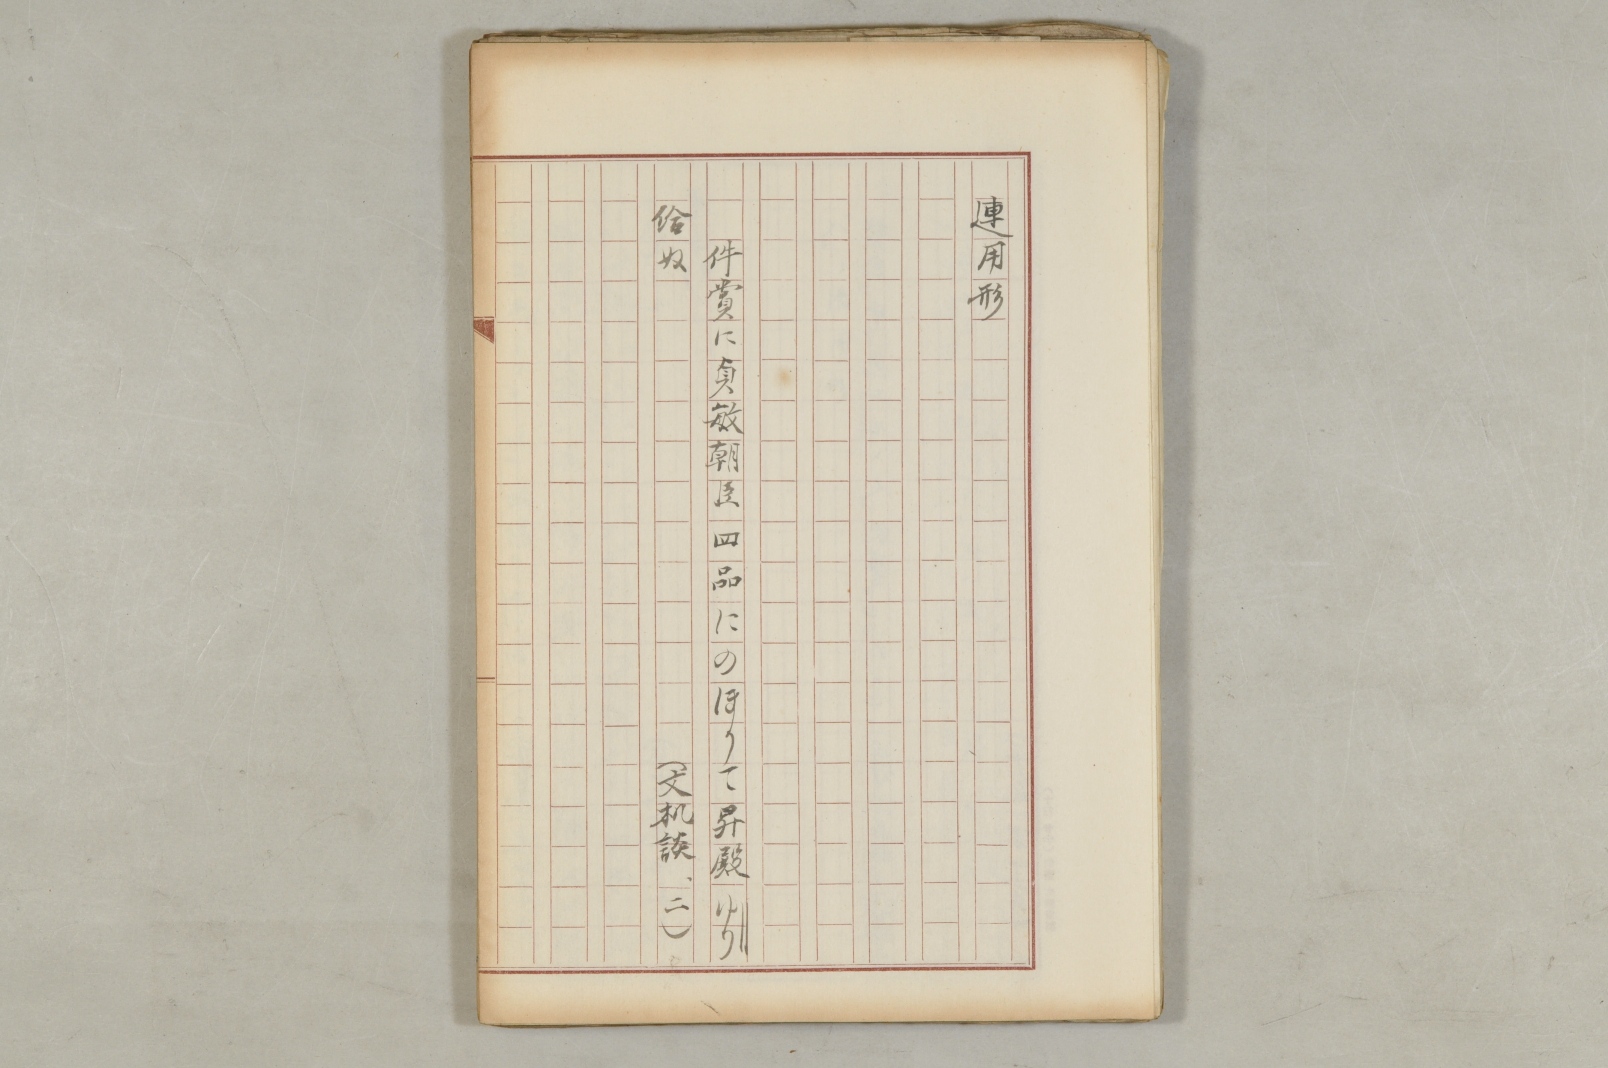 連用形
件賞に貞敏朝臣四品にのほりて昇殿ゆり
給奴
(文机談、二)